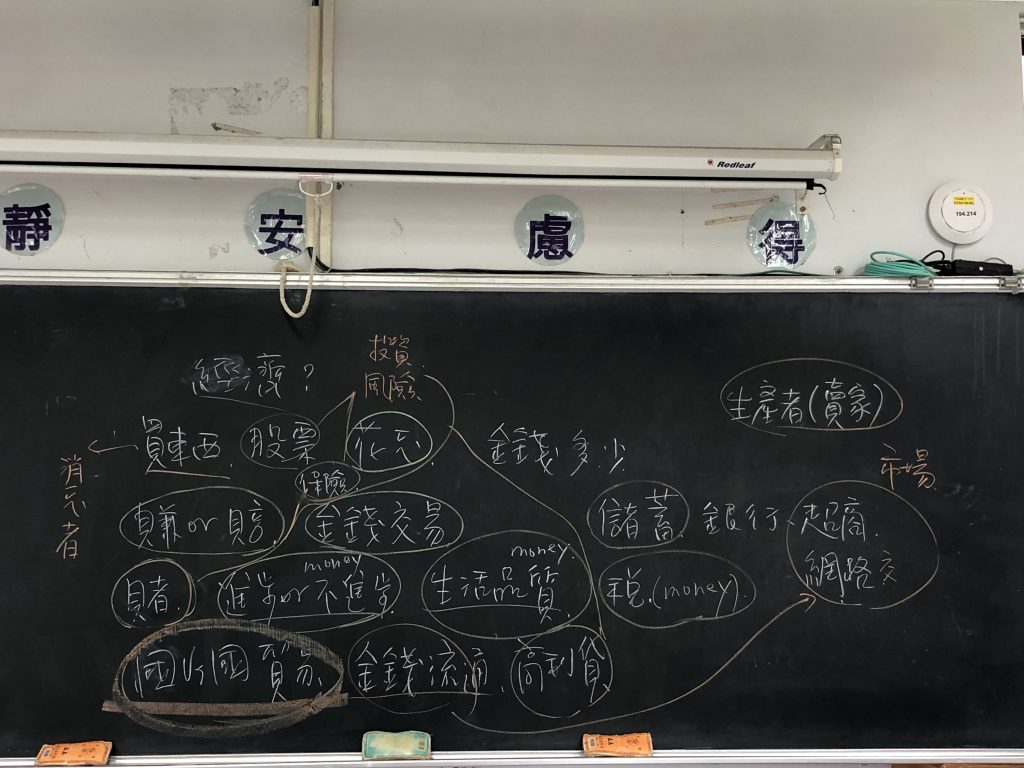 Redleaf
靜 安 慮 得
194.214
經濟?
投資
風險
生產者(賣家)
買東西 股票 花 金錢多少
消 者
市場
保險
賺or 金錢交易 儲蓄 銀行、超商
網路交
money money
賭 進步or不進步 生活品質 稅(money)
國 國貿易 金錢流通 高利貸